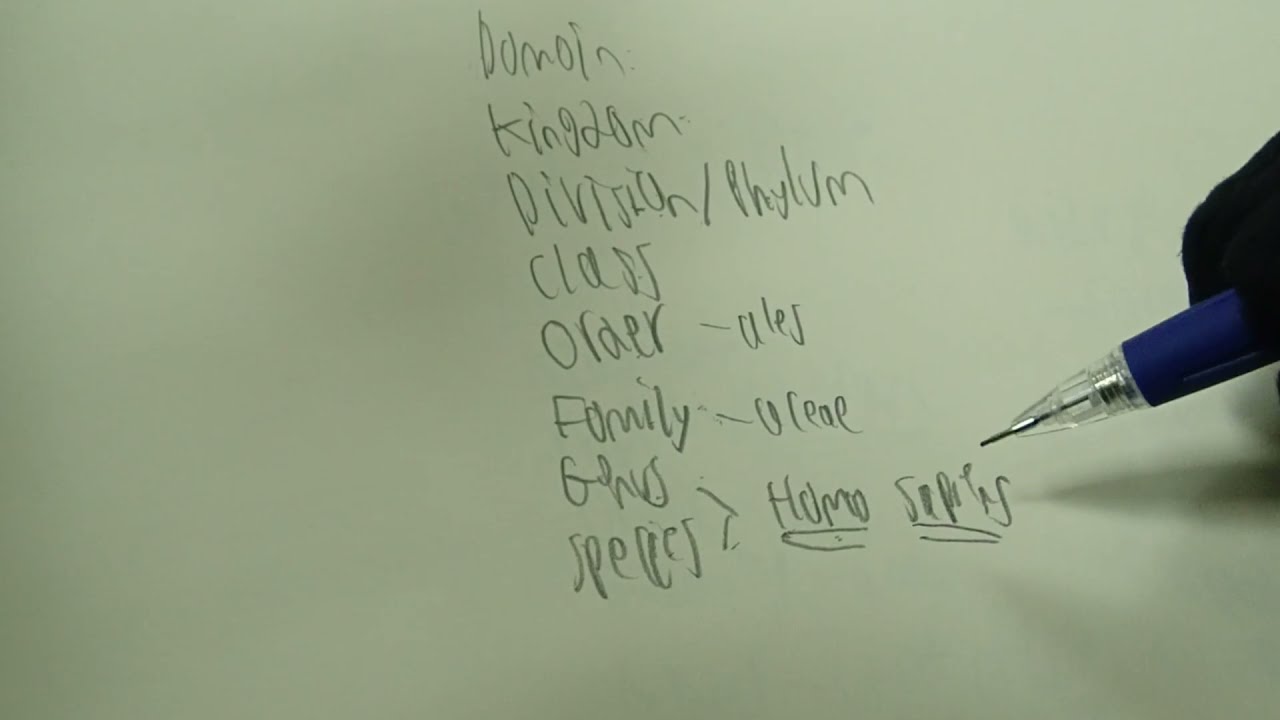 Domain
Kingdom
Division/Phylum
Class
Order -ales
Family -aceae
Genus
Species
Homo Sapiens